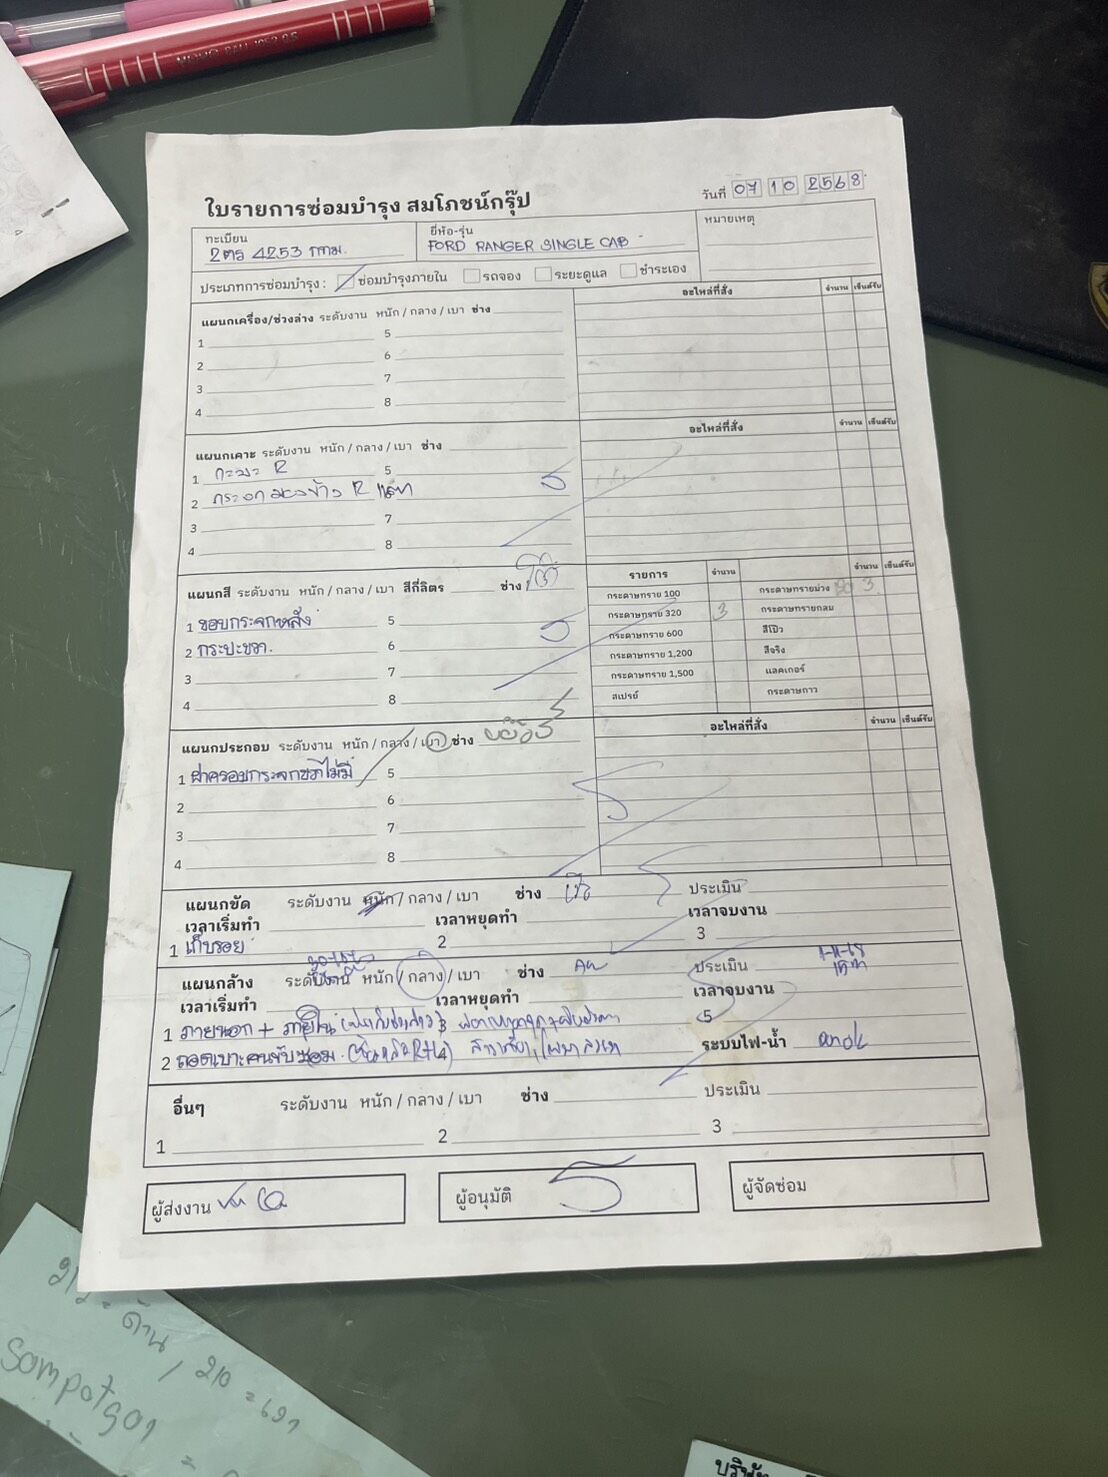 ใบรายการซ่อมบำรุง สมโภชน์กรุ๊ป
วันที่ 07 10 2568
ทะเบียน
2ตร 4253 กทม.
ยี่ห้อ-รุ่น
FORD RANGER SINGLE CAB
หมายเหตุ
ประเภทการซ่อมบำรุง : ซ่อมบำรุงภายใน รถจอง ระยะดูแล ชำระเอง
แผนกเครื่อง/ช่วงล่าง ระดับงาน หนัก / กลาง / เบา ช่าง
อะไหล่ที่สั่ง จำนวน เซ็นต์รับ
1 5
2 6
3 7
4 8
แผนกเคาะ ระดับงาน หนัก / กลาง / เบา ช่าง
อะไหล่ที่สั่ง จำนวน เซ็นต์รับ
1 กะบะ R 5
2 กระจกมองข้าง R แตก
3 7
4 8
แผนกสี ระดับงาน หนัก / กลาง / เบา สีกี่ลิตร ช่าง
รายการ จำนวน จำนวน เซ็นต์รับ
1 ขอบกระจกหลัง 5
2 กระบะขวา. 6
3 7
4 8
กระดาษทราย 100 กระดาษทรายม่วง 3
กระดาษทราย 320 3 กระดาษทรายกลม
กระดาษทราย 600 สีโป๊ว
กระดาษทราย 1,200 สีจริง
กระดาษทราย 1,500 แลคเกอร์
สเปรย์ กระดาษกาว
แผนกประกอบ ระดับงาน หนัก / กลาง / เบา ช่าง
อะไหล่ที่สั่ง จำนวน เซ็นต์รับ
1 ฝาครอบกระจกขวาไม่มี 5
2 6
3 7
4 8
แผนกขัด ระดับงาน หนัก / กลาง / เบา ช่าง ประเมิน
เวลาเริ่มทำ เวลาหยุดทำ เวลาจบงาน
1 เก็บรอย 2 3
แผนกล้าง ระดับงาน หนัก / กลาง / เบา ช่าง ประเมิน
เวลาเริ่มทำ เวลาหยุดทำ เวลาจบงาน
1 ภายนอก + ภายใน 3 5
2 ถอดเบาะคนขับซ่อม 4 ระบบไฟ-น้ำ
อื่นๆ ระดับงาน หนัก / กลาง / เบา ช่าง ประเมิน
1 2 3
ผู้ส่งงาน
ผู้อนุมัติ
ผู้จัดซ่อม
Sompot